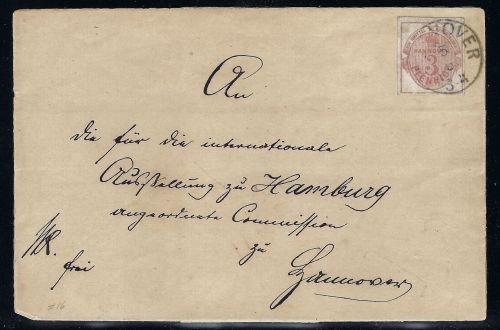 NOVER
HANNOVER
3
PFENNIGE
An
die für die internationale
Ausstellung zu Hamburg
angeordnete Commission
zu
frei
Hannover
#16